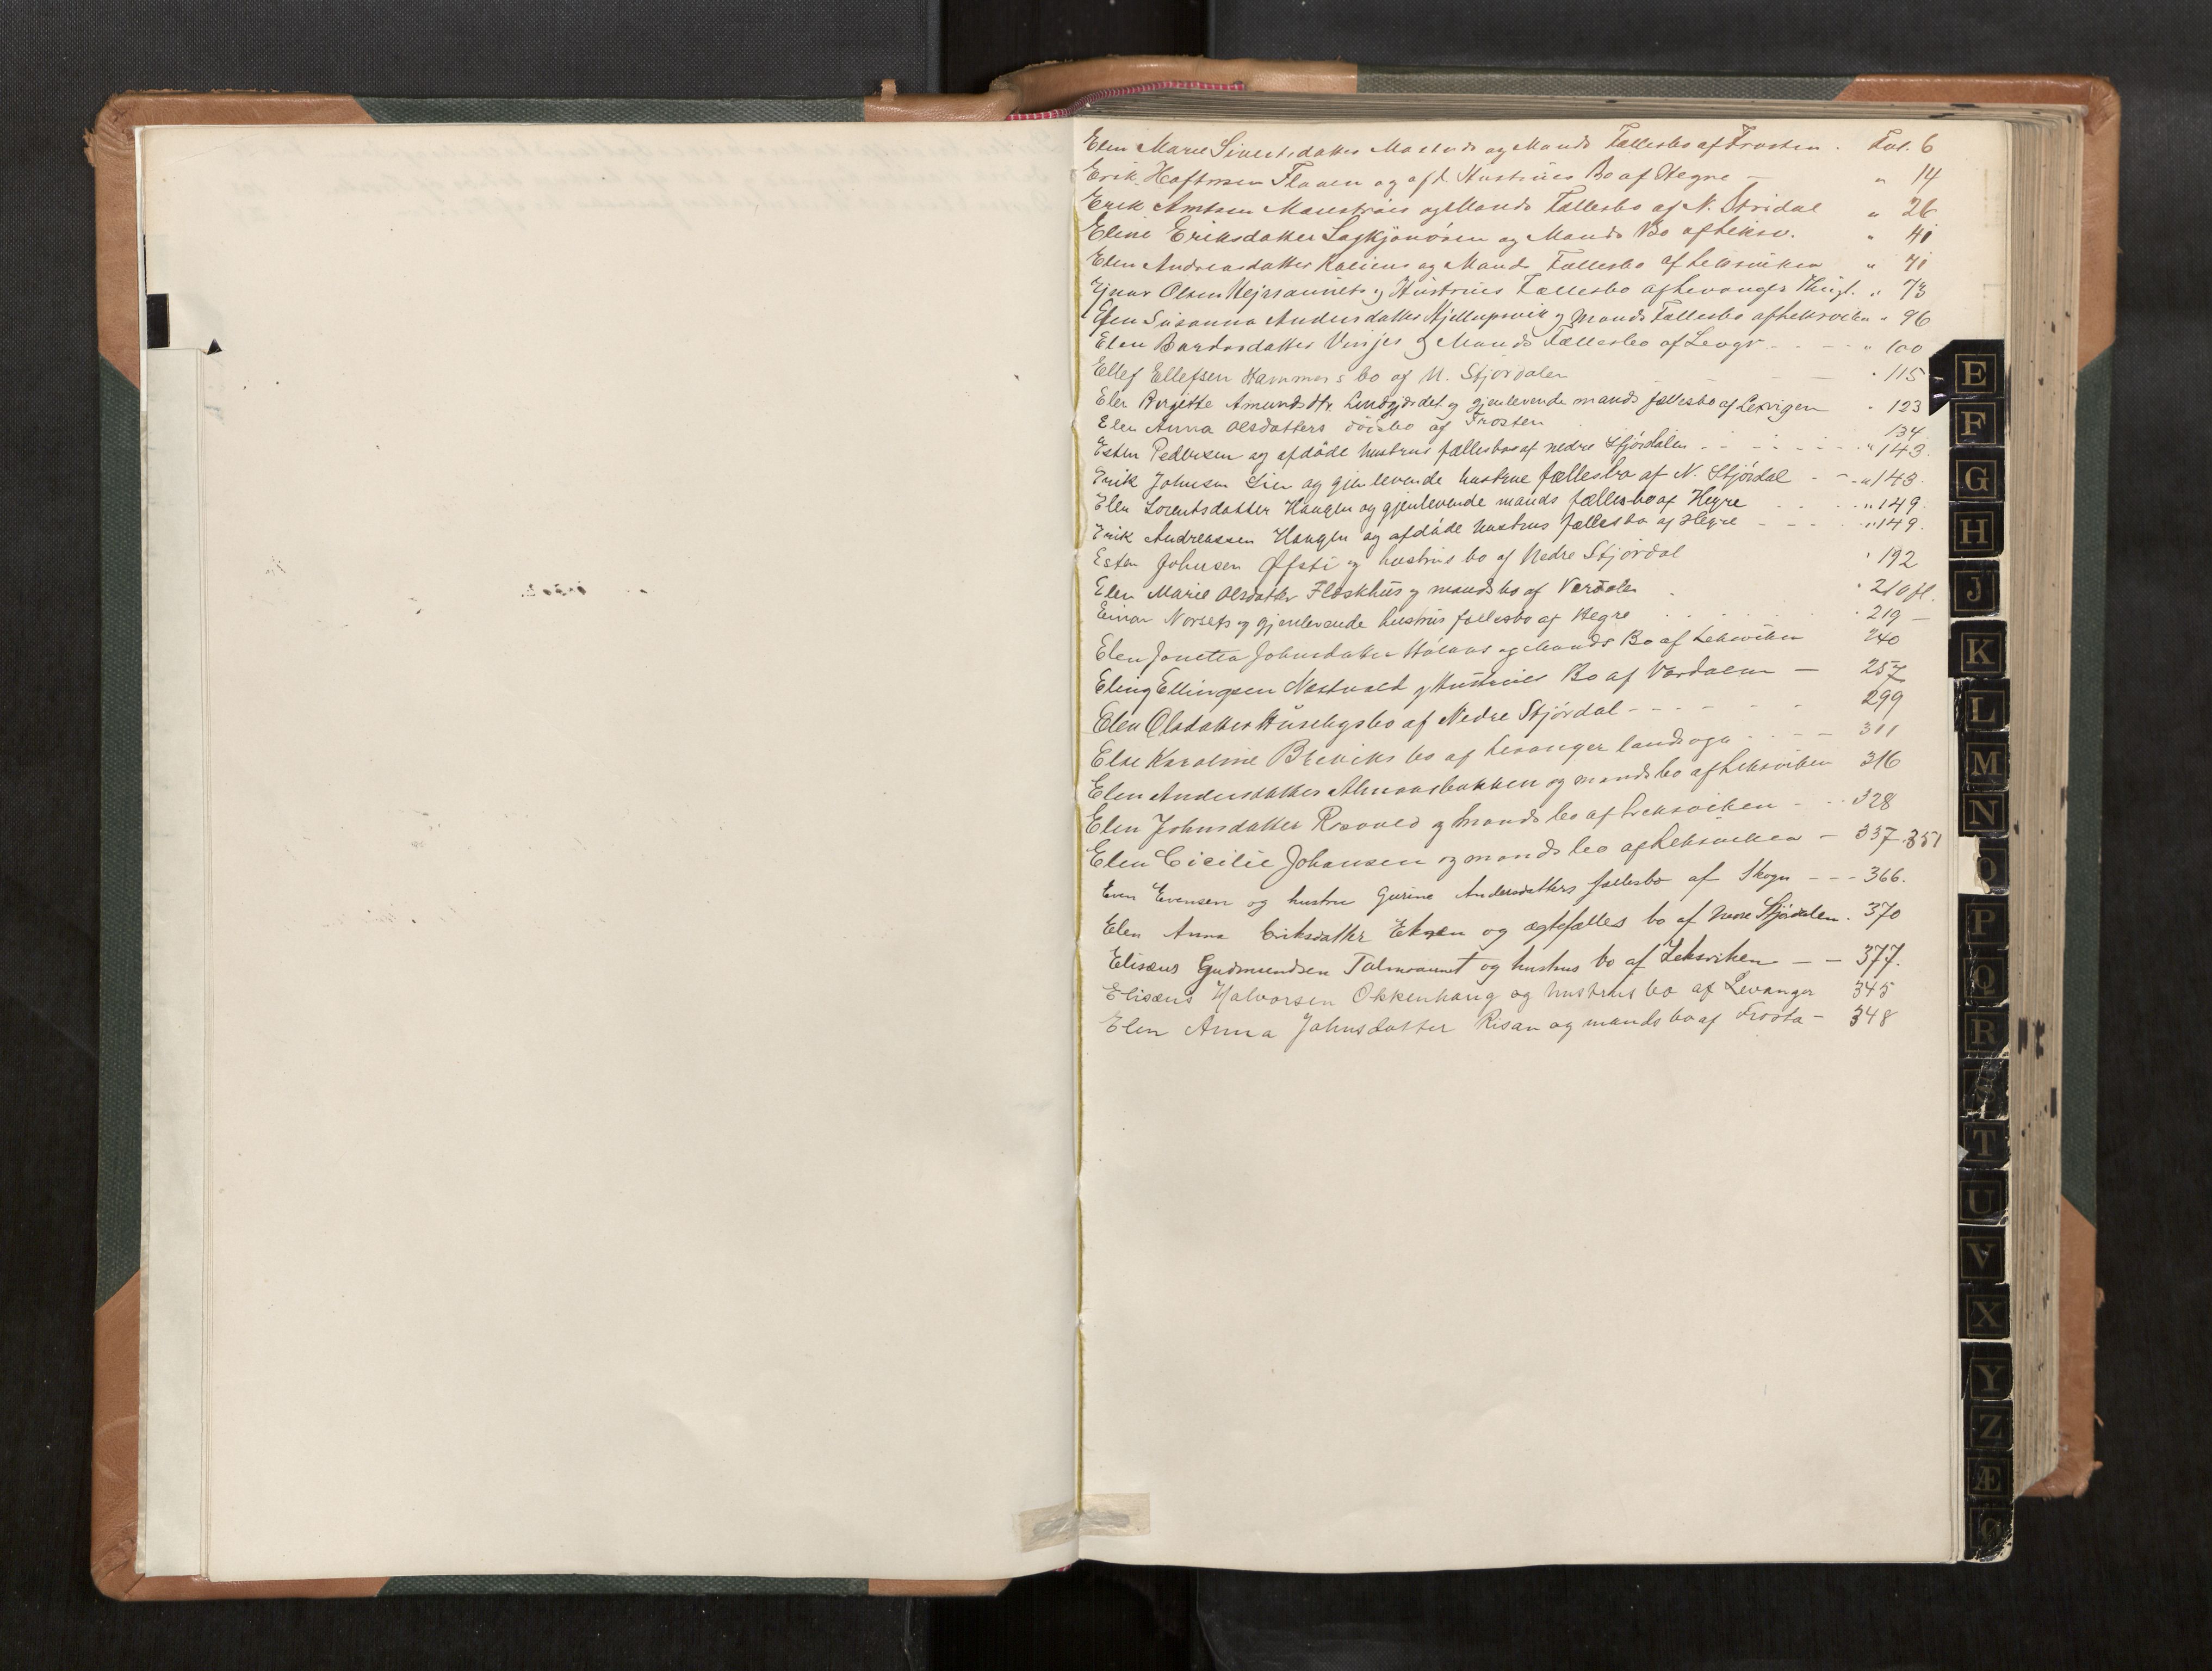 Elen Marie Sivertsdatter og Mands Fællesbo af Frosten . Fol. 6
Erik Haftorsen Flaaen og afd. Hustrues Bo af Hegre — " 14
Erik Arntsen og Mands Fællesbo af N. Stridal " 26
Eline Eriksdatter og Mands Bo af Leksv. " 41
Elen Andreasdatter og Mands Fællesbo af Leksviken " 41
Ejnar Olsen og Hustrues Fællesbo af Levanger " 73
Elen Susanna Andersdatter og Mands Fællesbo af Leksviken " 96
Elen Bardosdatter Vinjes og Mands Fællesbo af Levgr - - - " 100
Ellef Ellefsen Hammers bo af N. Stjørdalen — " 115
Elen Birgitte Amundsdtr. og gjenlevende mands fællesbo af Lexvigen " 123
Elen Anna Olsdatters bo af Frosten 134
Esten Pedersen og afdøde hustrus fællesbo af nedre Stjørdalen - - - - - " 143.
Erik Johnsen Lien og gjenlevende hustrue fællesbo af N. Stjørdal - - " 143.
Elen Lorentsdatter Haugen og gjenlevende mands fællesbo af Hegre " 149.
Erik Andreassen Haugen og afdøde hustrus fællesbo af Hegre - - - - " 149.
Esten Johnsen Øfsti og hustrus bo af Nedre Stjørdal " 192
Elen Marie Olsdatter Floskhus og mands bo af Verdalen " 210 fl.
Einar Norsets og gjenlevende hustrus fællesbo af Hegre " 219 —
Elen Jonetta Johnsdatter og Mands Bo af Leksviken 240
Eling Ellingsen Nestvold og Hustrues Bo af Værdalen — 257
Elen Olsdatter Husebys bo af Nedre Stjørdal - - - - - - 299
Else Karoline Breviks bo af Levanger landsogn - - - - 311
Elen Andersdatter Almaasbakken og mands bo af Leksviken 316
Elen Johnsdatter og mands bo af Leksviken - - - 328
Elen Cicilie Johansen og mands bo af Leksviken — 337.351
Even Evensen og hustru Gurine Andersdatters fællesbo af Skogn - - - 366.
Elen Anna Eriksdatter og ægtefælles bo af Nedre Stjørdalen . 370
Elisæus Gudmundsen og hustrus bo af Leksviken — — 377.
Elisæus Halvorsen Okkenhaug og hustrus bo af Levanger 345
Elen Anna Johnsdatter Risan og mands bo af Frosta — 348
E
F
G
H
J
K
L
M
N
O
P
Q
R
S
T
U
V
X
Y
Z
Æ
Ø